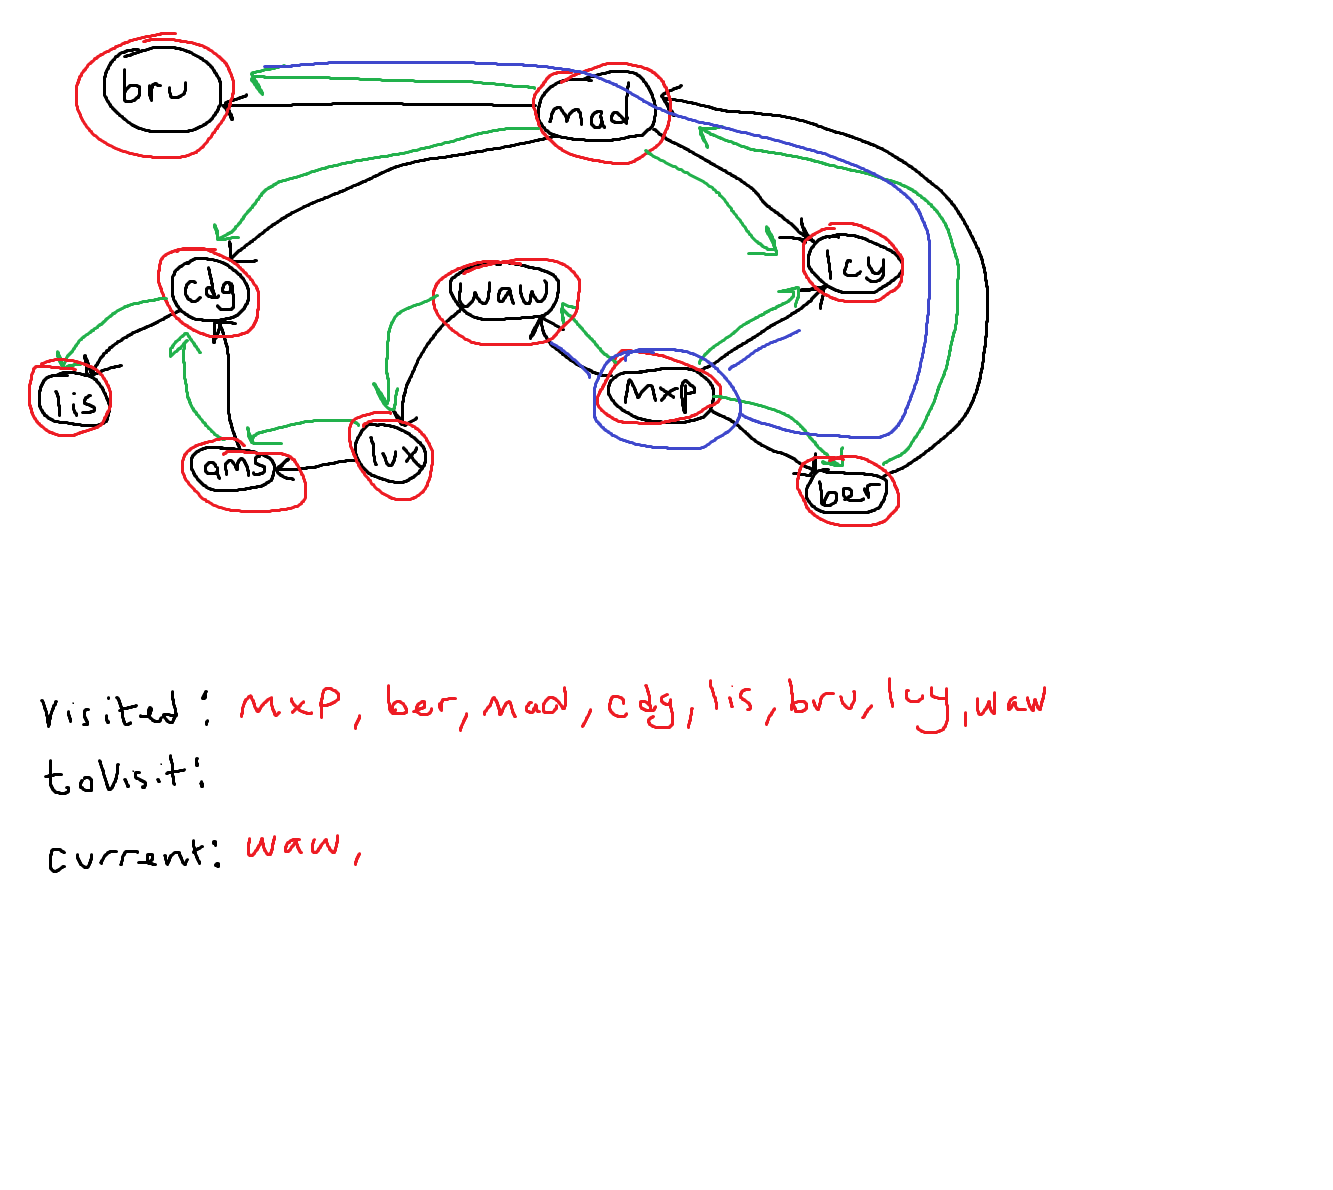 bru
mad
cdg
waw
lcy
lis
mxp
ams
lux
ber
visited: mxp, ber, mad, cdg, lis, bru, lcy, waw
toVisit:
current: waw,